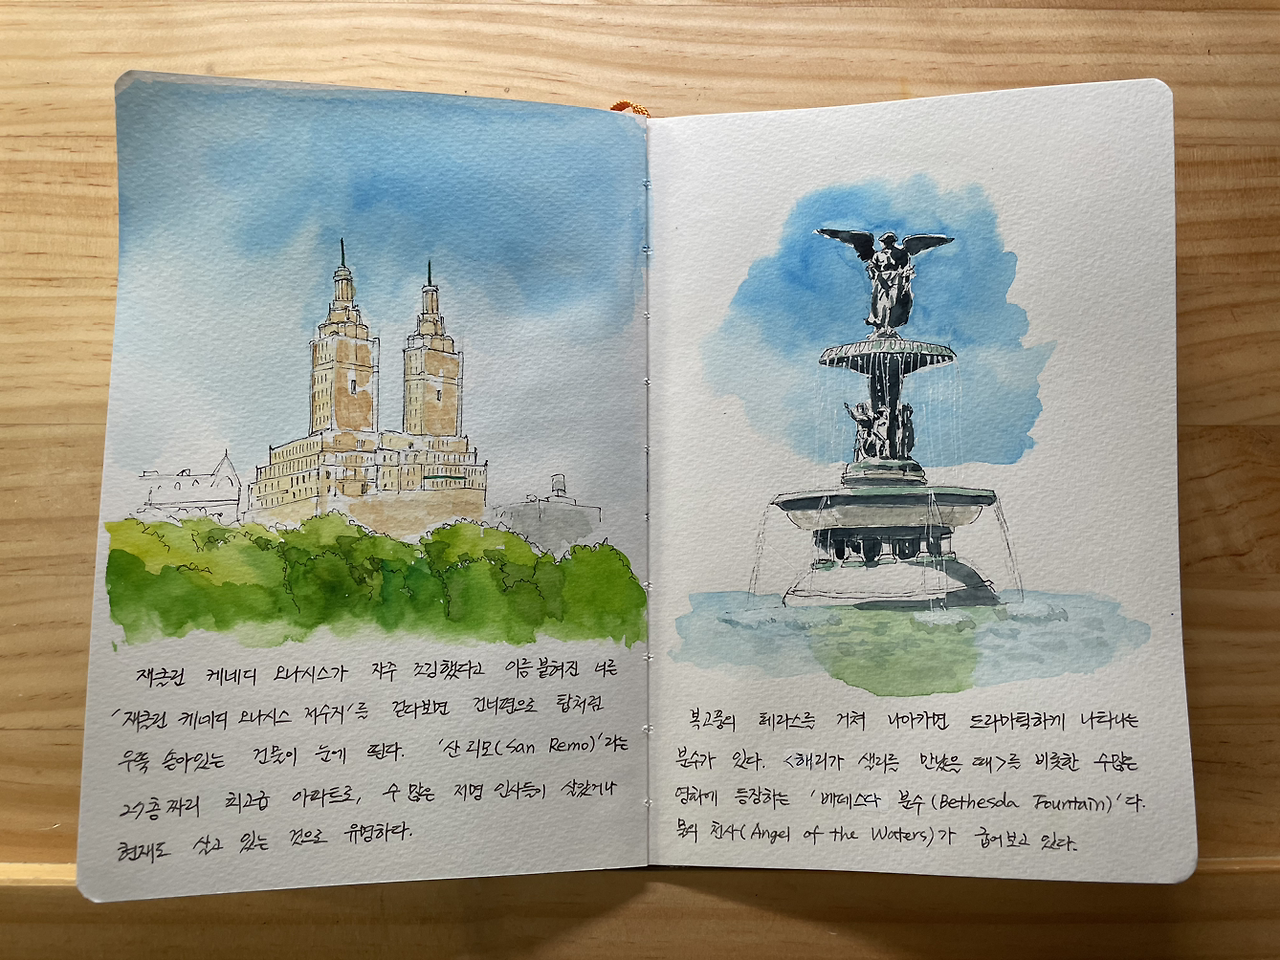 재클린 케네디 오나시스가 자주 조깅했다고 이름 붙혀진 너른
'재클린 케네디 오나시스 저수지'를 걷다보면 건너편으로 탑처럼
우뚝 솟아있는 건물이 눈에 띈다. '산 리모(San Remo)'라는
27층 짜리 최고급 아파트로, 수 많은 저명 인사들이 살았거나
현재도 살고 있는 것으로 유명하다.
복고풍의 테라스를 거쳐 나아가면 드라마틱하게 나타나는
분수가 있다. <해리가 샐리를 만났을 때>를 비롯한 수많은
영화에 등장하는 '베데스다 분수(Bethesda Fountain)'다.
물의 천사(Angel of the Waters)가 굽어보고 있다.